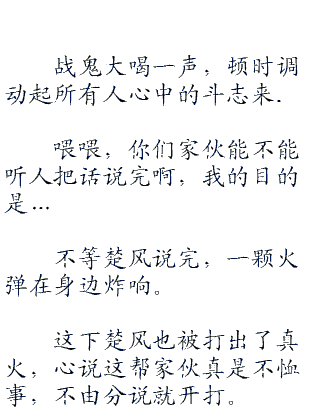 战鬼大喝一声，顿时调
动起所有人心中的斗志来.
喂喂，你们家伙能不能
听人把话说完啊，我的目的
是...
不等楚风说完，一颗火
弹在身边炸响。
这下楚风也被打出了真
火，心说这帮家伙真是不恤
事，不由分说就开打。